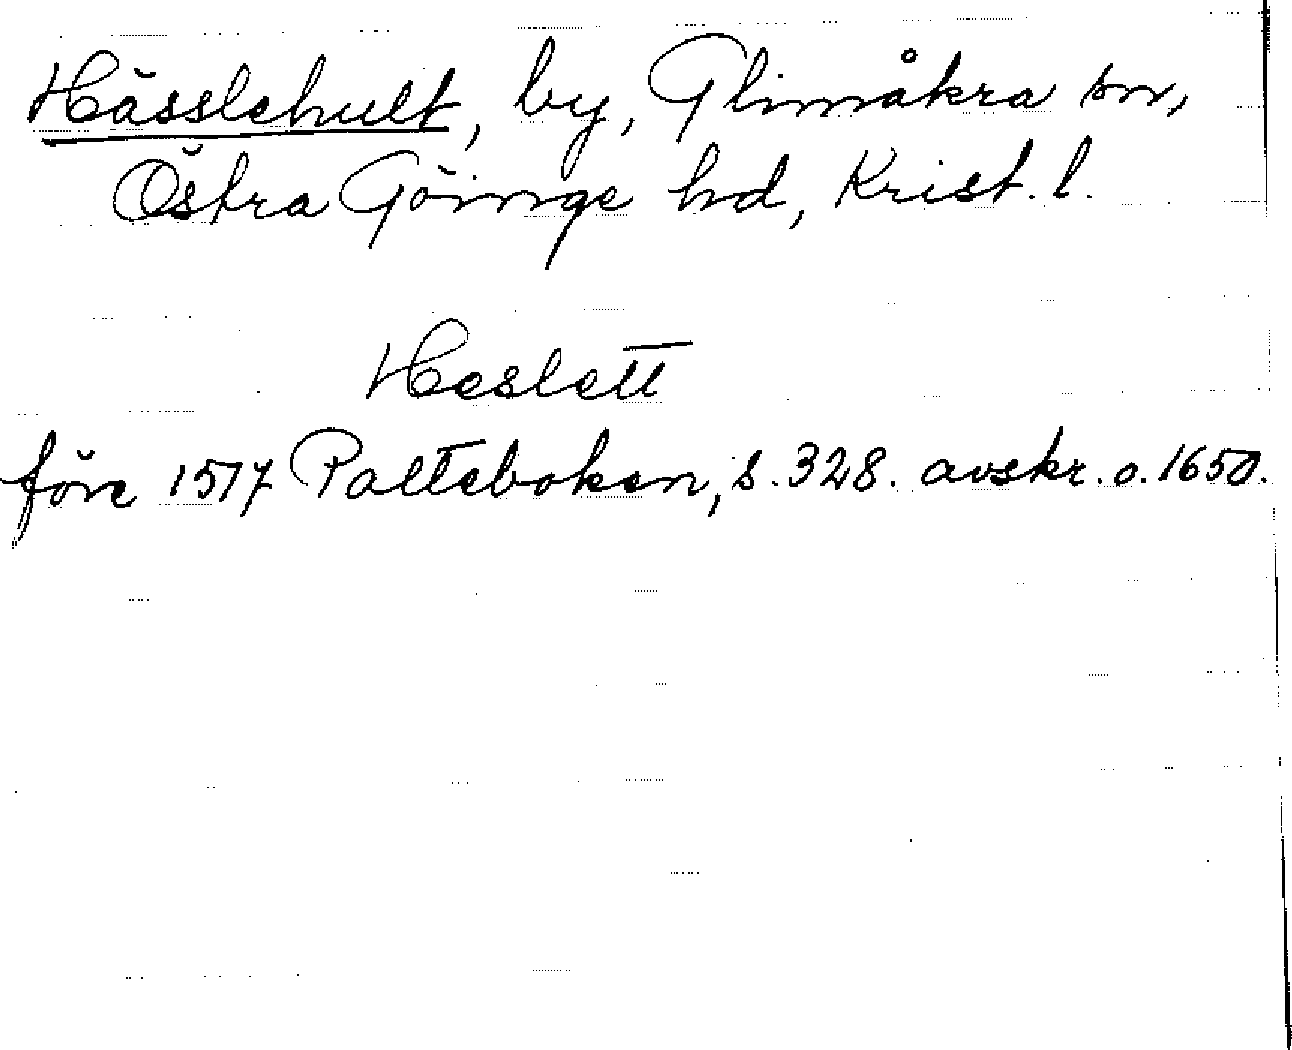 Hässlehult, by, Glimåkra sn,
Östra Göinge hd, Krist. l.
Heslett
före 1517 Palteboken, s. 328. avskr. o. 1650.